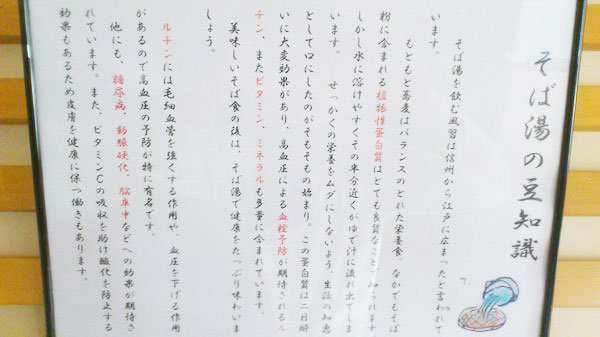 そば湯の豆知識
そば湯を飲む風習は信州から江戸に広まったと言われて
います。
もともと蕎麦はバランスのとれた栄養食。なかでもそば
粉に含まれる植物性蛋白質はとても良質なことで知られます
しかし水に溶けやすくその半分近くがゆで汁に流れ出てしま
います。 せっかくの栄養をムダにしないよう、生活の知恵
として口にしたのがそもそもの始まり。この蛋白質は二日酔
いに大変効果があり、高血圧による血栓予防が期待されるル
チン、またビタミン、ミネラルも多量に含まれています。
美味しいそば食の後は、そば湯で健康をたっぷり味わいま
しょう。
ルチンには毛細血管を強くする作用や、血圧を下げる作用
があるので高血圧の予防が特に有名です。
他にも、糖尿病、動脈硬化、脳卒中などへの効果が期待さ
れています。また、ビタミンCの吸収を助け酸化を防止する
効果もあるため皮膚を健康に保つ働きもあります。